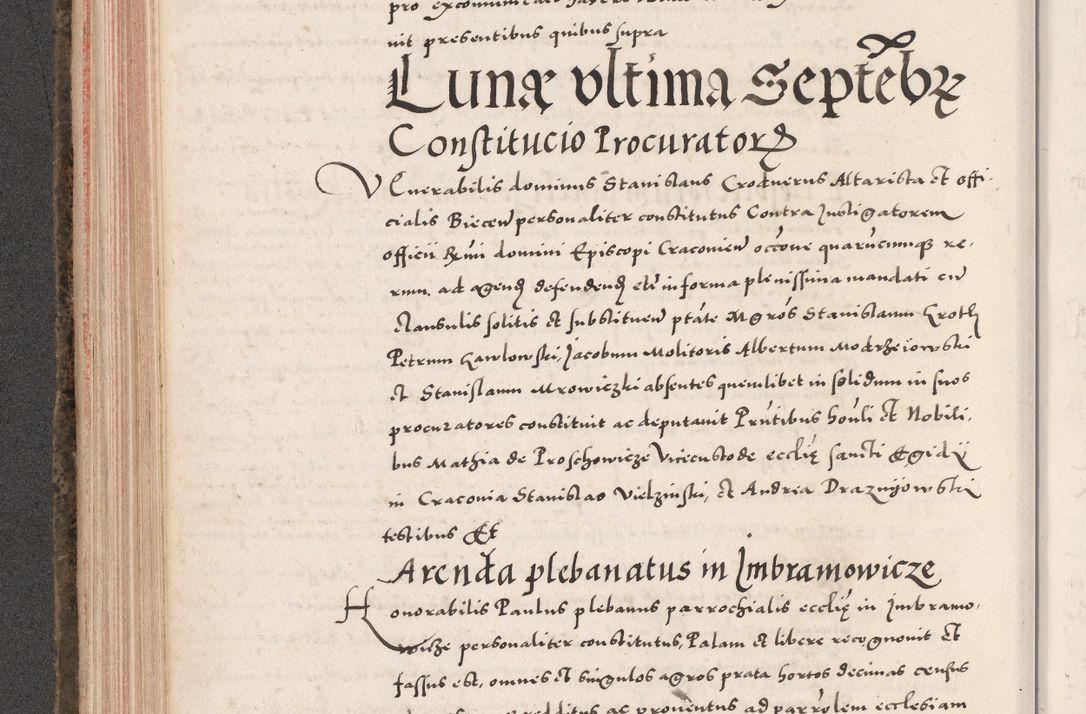 pro
nit presentibus quibus supra
Lunę vltima Septēbȝ
Constitucio Procuratorȝ
Venerabilis dominus Stanislaus Crocverus Altarista et offi-
cialis Biecen personaliter constitutus Contra Instigatorem
officii Rm̄i domini Episcopi Cracoviem occōne quarūcumqȝ re-
rum. ad agendȝ defendendȝ etc̄ in forma plenissima mandati cū
clausulis solitis et substituen ptāte Mgrōs Stanislaum Kroth
Petrum Gawlowski, Jacobum Molitoris Albertum Modrzeiowski
et Stanislaum Mrowiczki absentes quemlibet in solidum in suos
procuratores constituit ac deputauit Prn̄tibus honli et Nobili-
bus Mathia de Proschowicze Vicecustode ecclię sancti Egidij
in Craconia Stanislao Vielzinski, et Andrea Draznijowski
testibus Et
Arenda plebanatus in Imbramowicze
Honorabilis Paulus plebanus parrochialis ecclię in Imbramo-
wicze personaliter constitutus, Palam et libere recognouit et
fassus est, omnes et singulos agros prata hortos decimas census
redditus ac prouentus ad parrōlem ecclesiam